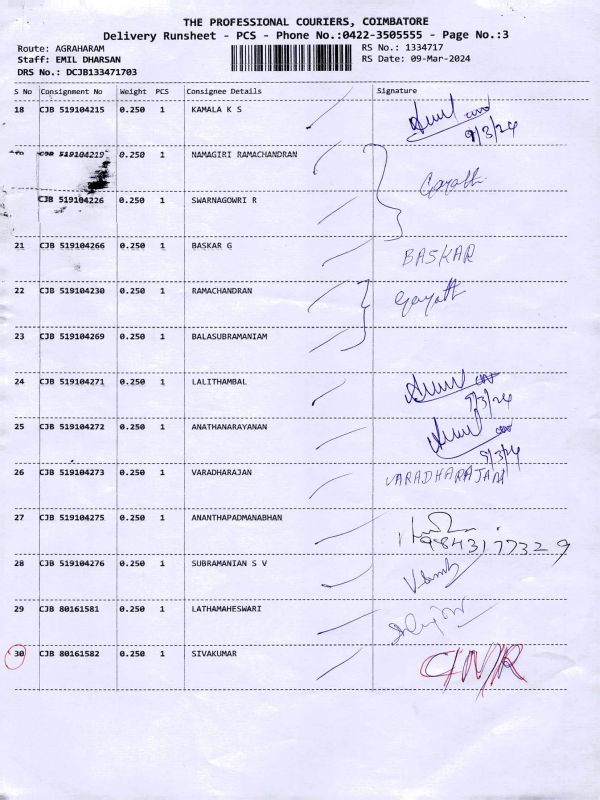 THE PROFESSIONAL COURIERS, COIMBATORE
Delivery Runsheet - PCS - Phone No.:0422-3505555 - Page No.:3
Route: AGRAHARAM RS No.: 1334717
Staff: EMIL DHARSAN RS Date: 09-Mar-2024
DRS No.: DCJB133471703
S No Consignment No Weight PCS Consignee Details Signature
18 CJB 519104215 0.250 1 KAMALA K S
9/3/24
CJB 519104219 0.250 1 NAMAGIRI RAMACHANDRAN
Gayath
CJB 519104226 0.250 1 SWARNAGOWRI R
21 CJB 519104266 0.250 1 BASKAR G BASKAR
22 CJB 519104230 0.250 1 RAMACHANDRAN Gayath
23 CJB 519104269 0.250 1 BALASUBRAMANIAM
24 CJB 519104271 0.250 1 LALITHAMBAL
9/3/24
25 CJB 519104272 0.250 1 ANATHANARAYANAN
9/3/24
26 CJB 519104273 0.250 1 VARADHARAJAN VARADHARAJAN
27 CJB 519104275 0.250 1 ANANTHAPADMANABHAN
9843177329
28 CJB 519104276 0.250 1 SUBRAMANIAN S V
29 CJB 80161581 0.250 1 LATHAMAHESWARI
30 CJB 80161582 0.250 1 SIVAKUMAR